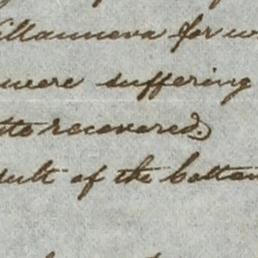 illanueva for w
were suffering
tto recovered.)
sult of the cotton